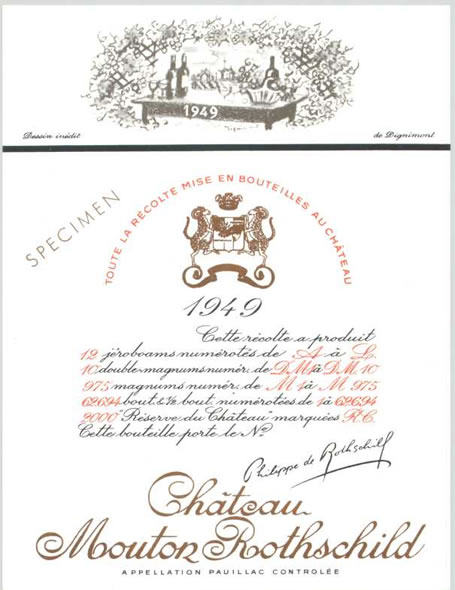 1949
Dessin inédit
de Dignimont
SPECIMEN
TOUTE LA RÉCOLTE MISE EN BOUTEILLES AU CHÂTEAU
1949
Cette récolte a produit
12 jéroboams numérotés de A à L
10 double magnums numér: de D.M. 1 à D.M. 10
975 magnums numér: de M 1 à M 975
62694 bout. & ½ bout. numérotées de 1 à 62694
2000 "Réserve du Château" marquées R.C.
Cette bouteille porte le Nº
Philippe de Rothschild
Château
Mouton Rothschild
APPELLATION PAUILLAC CONTROLÉE